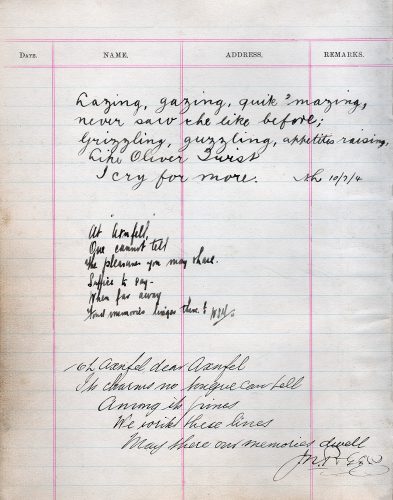 DATE. NAME. ADDRESS. REMARKS.
Lazing, gazing, quik 'mazing,
never saw the like before;
Grizzling, guzzling, appetites raising,
Like Oliver Twist
I cry for more. 10/7/4
At Axnfell,
One cannot tell
The pleasures you may share.
Suffice to say-
When far away
Fond memories linger there.
Oh Axnfel dear Axnfel
Its charms no tongue can tell
Among its pines
We write these lines
May there our memories dwell